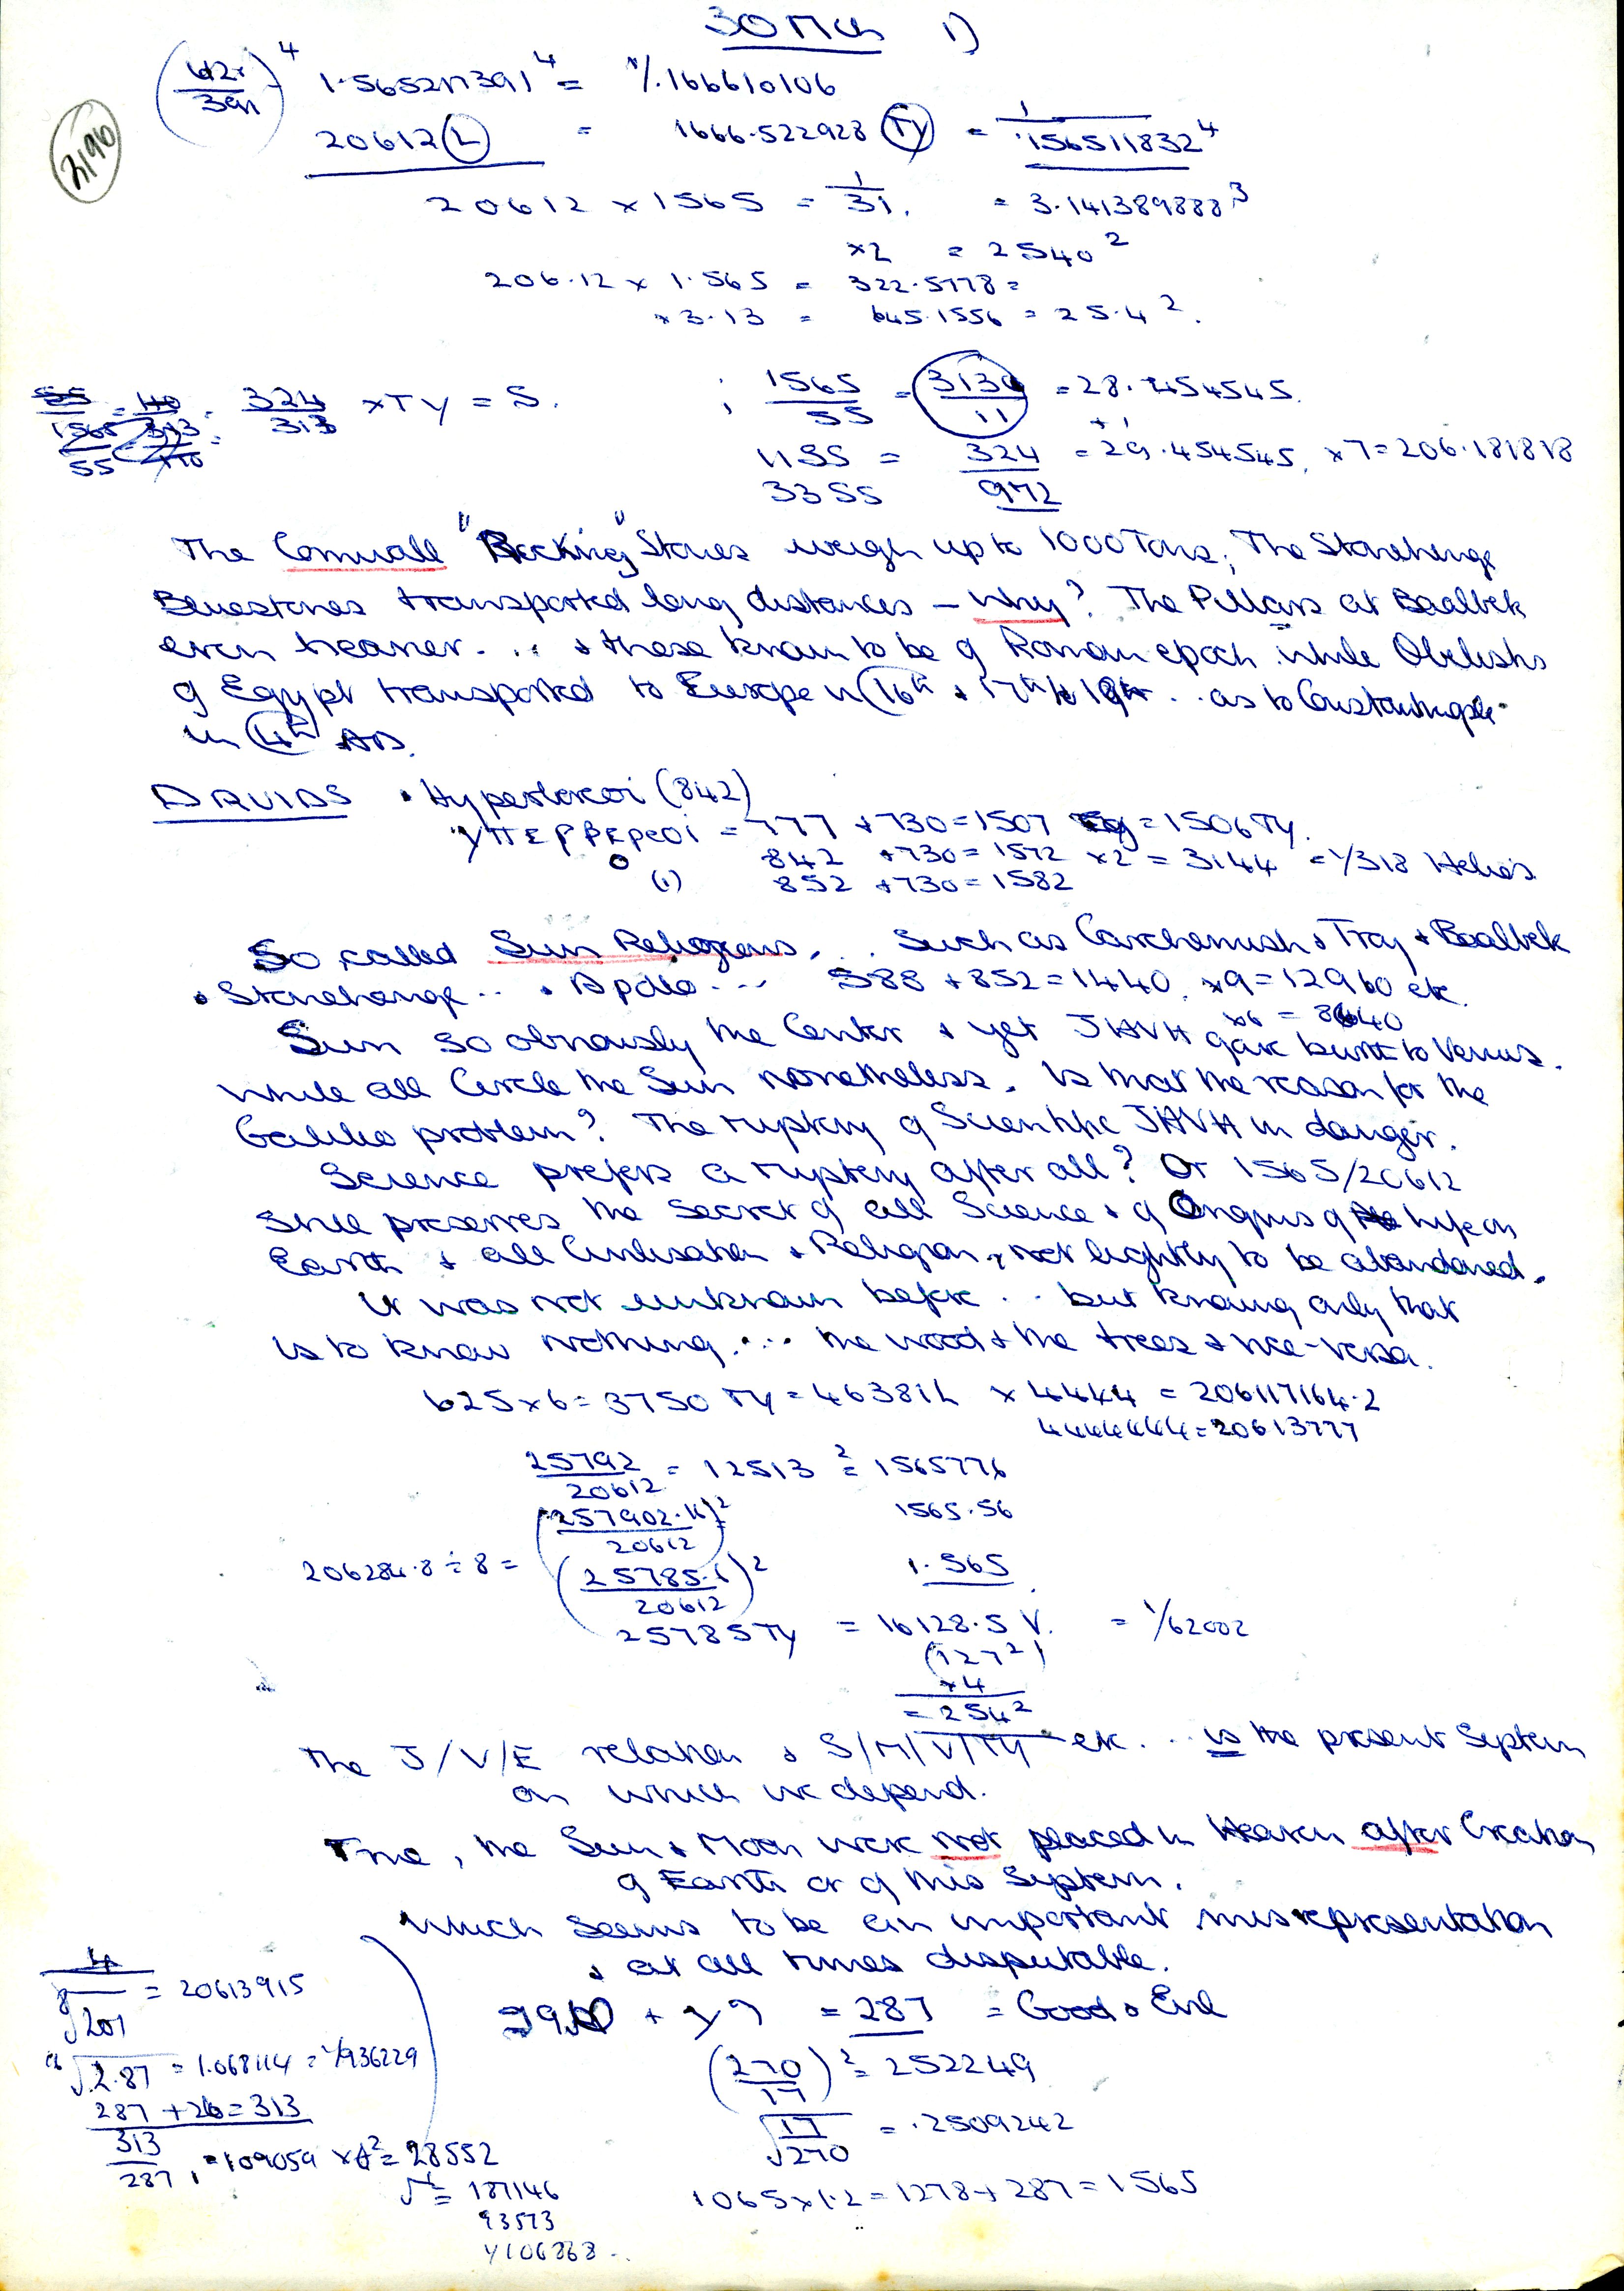 30 Mch 1)
3190
1.565217391⁴ = 1/.166610106
20612 (L) = 1666.522928 (TY) = 1/.156511832⁴
20612 × 1565 = 1/31. = 3.141389888³
×2 = 2540²
206.12 × 1.565 = 322.5778 =
× 3.13 = 645.1556 = 25.4².
324/313 × TY = S. ; 1565/55 = 3130/11 = 28.454545.
+1
11SS = 324 = 29.454545, × 7 = 206.181818
33SS 972
The Cornwall "Rocking" Stones weigh up to 1000 Tons; The Stonehenge
Bluestones transported long distances – Why? The Pillars at Baalbek
even heavier... & these known to be of Roman epoch while Obelisks
of Egypt transported to Europe in 16th & 17th to 19th .. as to Constantinople
in 4th AD.
DRUIDS • Hyperboreoi (842)
= 777 + 730 = 1507 Eg = 1506 TY.
842 + 730 = 1572 × 2 = 3144 = 1/318 Helios
(1) 852 + 730 = 1582
So called Sun Religions, .. Such as Carchemish & Troy & Baalbek
& Stonehenge .. & Apollo ... 588 + 852 = 1440, × 9 = 12960 etc.
×6 = 8640
Sun so obviously the Center & yet JHVH gave birth to Venus.
While all Circle the Sun nonetheless. Is that the reason for the
Galileo problem? The mystery of Scientific JHVH in danger.
Science prefers a mystery after all? Or 1565/20612
still preserves the secret of all Science & of Origins of life on
Earth & all Civilisation & Religion, not lightly to be abandoned.
It was not unknown before .. but knowing only that
is to know nothing.... the wood & the trees & vice-versa.
625 × 6 = 3750 TY = 46381L × 4444 = 206117164.2
4444444 = 20613777
25792/20612 = 12513² = 1565776
(257902.16/20612)² 1565.56
206284.8 ÷ 8 = (25785.6/20612)² 1.565
25785 TY = 16128.5 V. = 1/62002
(127²)
×4
= 254²
The J/V/E relation & S/M/V/TY etc... is the present System
on which we depend.
True, the Sun & Moon were not placed in Heaven after Creation
of Earth or of this System.
Which seems to be an important misrepresentation
& at all times disputable.
= 287 = Good & Evil
= 20613915
√2.87 = 1.068114 = 1/936229
287 + 26 = 313
313/287 = 109059
= 28552
187146
93573
1/106868..
(270/17)² = 252249
√17/270 = .2509242
1065 × 1.2 = 1278 + 287 = 1565